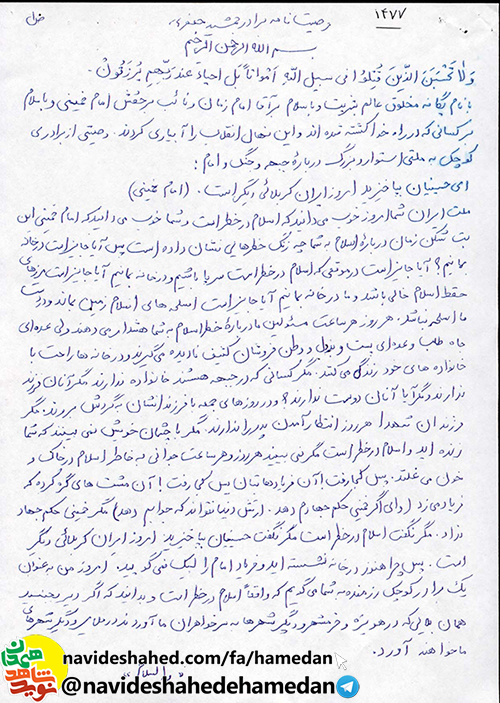 ۱۴۷۷
وصیت نامه برادر جمشید جعفری
بسم الله الرحمن الرحیم
وَلا تَحْسَبَنَ الَّذینَ قُتِلُوا فی سبیل اللّه أمْواتاً بَل اَحیاءٌ عِندَ رَبِّهِم یُرزَقُونْ.
با نام یگانه مخلوق عالم بشریت و با سلام بر آقا امام زمان و نائب برحقش امام خمینی و با سلام
بر کسانی که در راه خدا کشته شده اند و این نهال انقلاب را آبیاری کردند. وصیتی از برادری
کوچک به ملتی استوار و بزرگ درباره جبهه و جنگ و امام:
ای حسینیان بپا خیزید امروز ایران کربلائی دیگر است. (امام خمینی)
ملت ایران شما امروز خوب می دانید که اسلام در خطر است و شما خوب می دانید که امام خمینی این
بت شکن زمان درباره اسلام به شما چه زنگ خطرهایی نشان داده است پس آیا جایز است در خانه
بمانیم؟ آیا جایز است در موقعی که اسلام در خطر است سر پا باشیم و در خانه بمانیم آیا جایز است مرزهای
حفظ اسلام خالی باشد و ما در خانه بمانیم آیا جایز است اسلحه های اسلام زمین بماند و در دست
ما اسلحه نباشد. هر روز هر ساعت مسئولین ما درباره خطر اسلام به شما هشدار می دهند ولی عده ای
جاه طلب و عده ای پست و و وطن فروشان کثیف نادیده می گیرند و در خانه ها راحت با
خانواده های خود زندگی می کنند. مگر کسانی که در جبهه هستند خانواده ندارند مگر آنان فرزند
ندارند و مگر آیا آنان دوست ندارند؟ و در روزهای جمعه با فرزندانشان به گردش بروند. مگر
فرزندان شهدا هر روز انتظار آمدن پدر را ندارند. مگر با چشمان خوش نمی بینید که شما
زنده اید و اسلام در خطر است مگر نمی بینید هر روز و هر ساعت جوانی به خاطر اسلام در خاک و
خون می غلتد. پس کجا رفت آن فریادهایتان پس کجا رفت! آن مشت های گره کرده که
فریاد می زد (وای اگر خمینی حکم جهادم دهد. ارتش دنیا نتواند که جوابم دهد) مگر خمینی حکم جهاد
نداد. مگر نگفت اسلام در خطر است مگر نگفت حسینیان بپا خیزید امروز ایران کربلائی دیگر
است. پس چرا هنوز در خانه نشسته اید و فریاد امام را لبیک نمی گویید. امروز من به عنوان
یک برادر کوچک رزمنده به شما می گویم که واقعاً اسلام در خطر است و بدانید که اگر دیر بجنبید
همان هائی که در هویزه و خرمشهر و دیگر شهرها به سر خواهران ما آوردند در ملایر و دیگر شهرهای
ما خواهند آورد.
والسلام
نوید شاهد همدان
navideshahed.com/fa/hamedan
@navideshahedehamedan